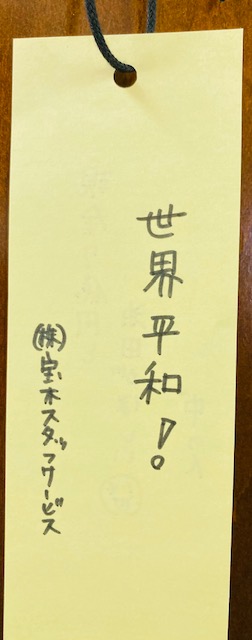 世界平和！
㈱宝木スタッフサービス